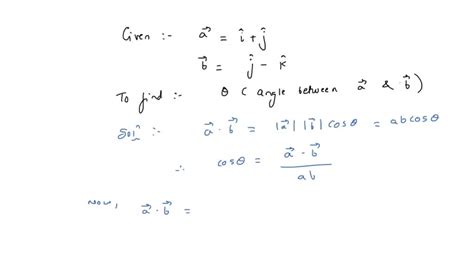 Given :- a⃗ = î + ĵ
b⃗ = ĵ - k̂
To find :- θ ( angle between a⃗ & b⃗ )
Solⁿ :- a⃗ · b⃗ = |a⃗| |b⃗| cosθ = ab cosθ
∴ cosθ = a⃗ · b⃗ / ab
Now, a⃗ · b⃗ =